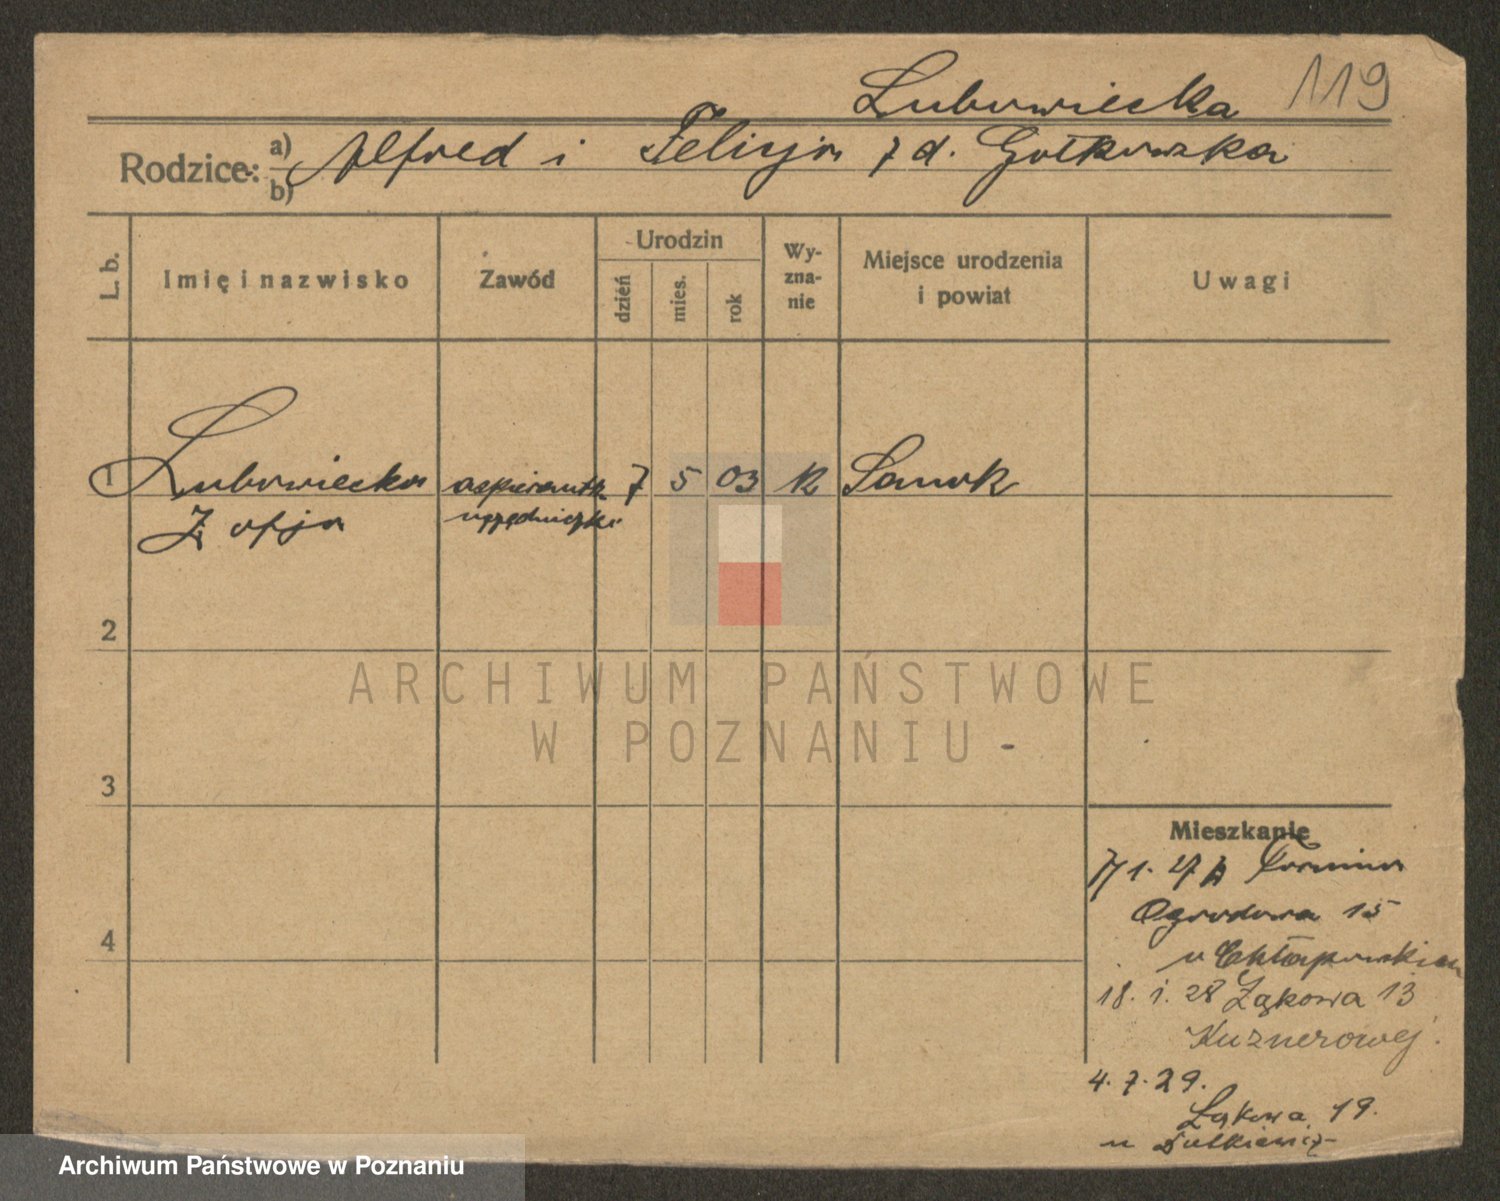 Lubowiecka 119
Rodzice: a) Alfred i Felicja z d. Gołkowska
b)
L. b. Imię i nazwisko Zawód Urodzin dzień mies. rok Wyznanie Miejsce urodzenia i powiat Uwagi
1 Lubowiecka aspirantk 7 5 03 K Sanok
Zofja urzędniczki
2
ARCHIWUM PAŃSTWOWE
W POZNANIU
3
Mieszkanie
1. 27
Ogrodowa 15
u Chłapowskich
4
18. 1. 28 Łąkowa 13
Kuznerowej.
4. 7. 29.
Łąkowa 19.
u Dutkiewicz
Archiwum Państwowe w Poznaniu